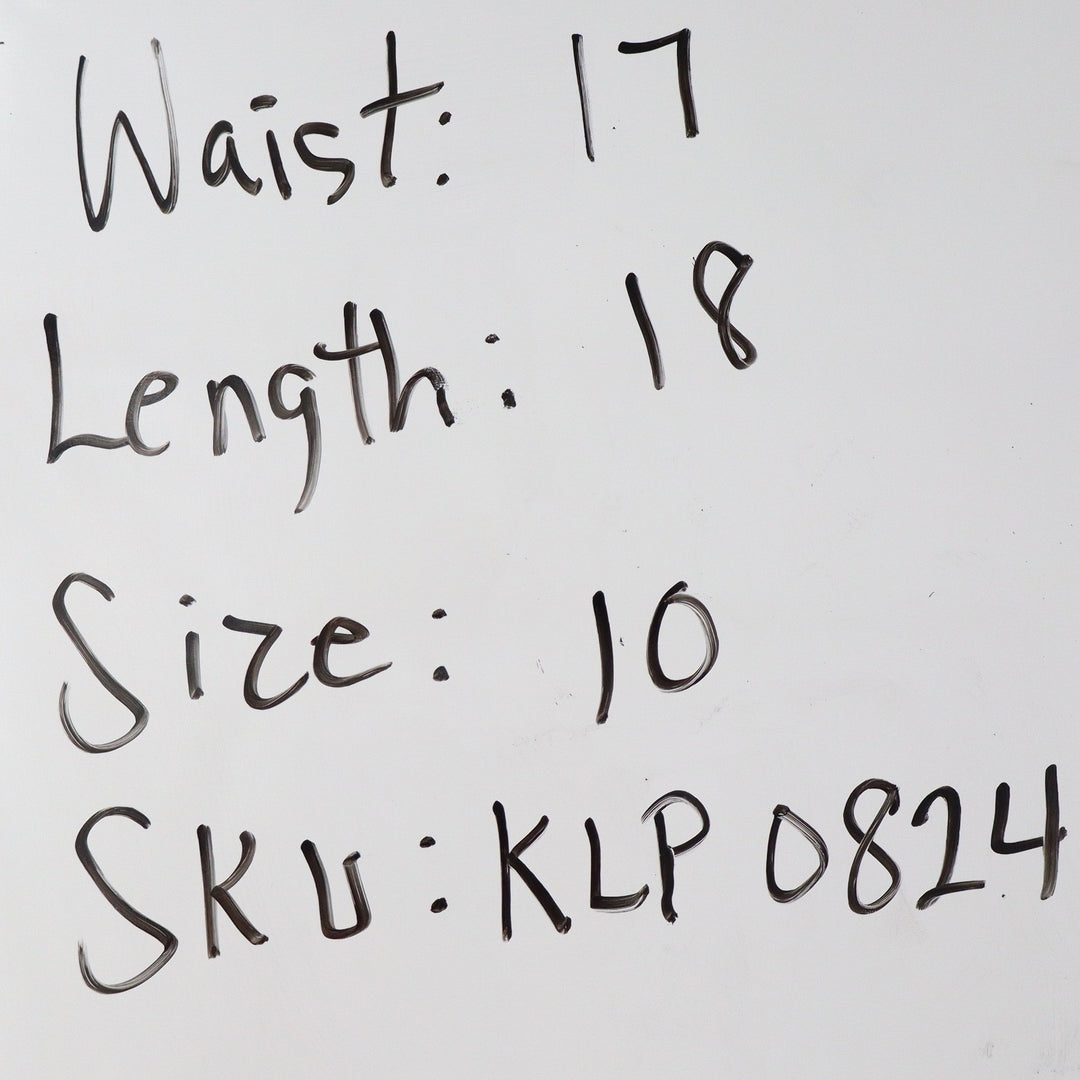 Waist: 17
Length: 18
Size: 10
SKU: KLP 0824